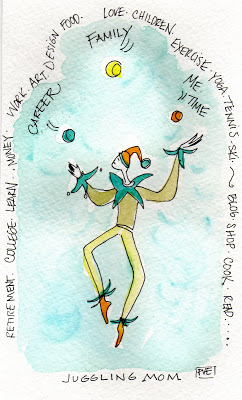 RETIREMENT. COLLEGE. LEARN... MONEY. WORK. ART. DESIGN FOOD. LOVE. CHILDREN. EXERCISE. YOGA. TENNIS. SKI. BLOG SHOP COOK. READ.....
FAMILY
CAREER
ME
TIME
JUGGLING MOM
PVE